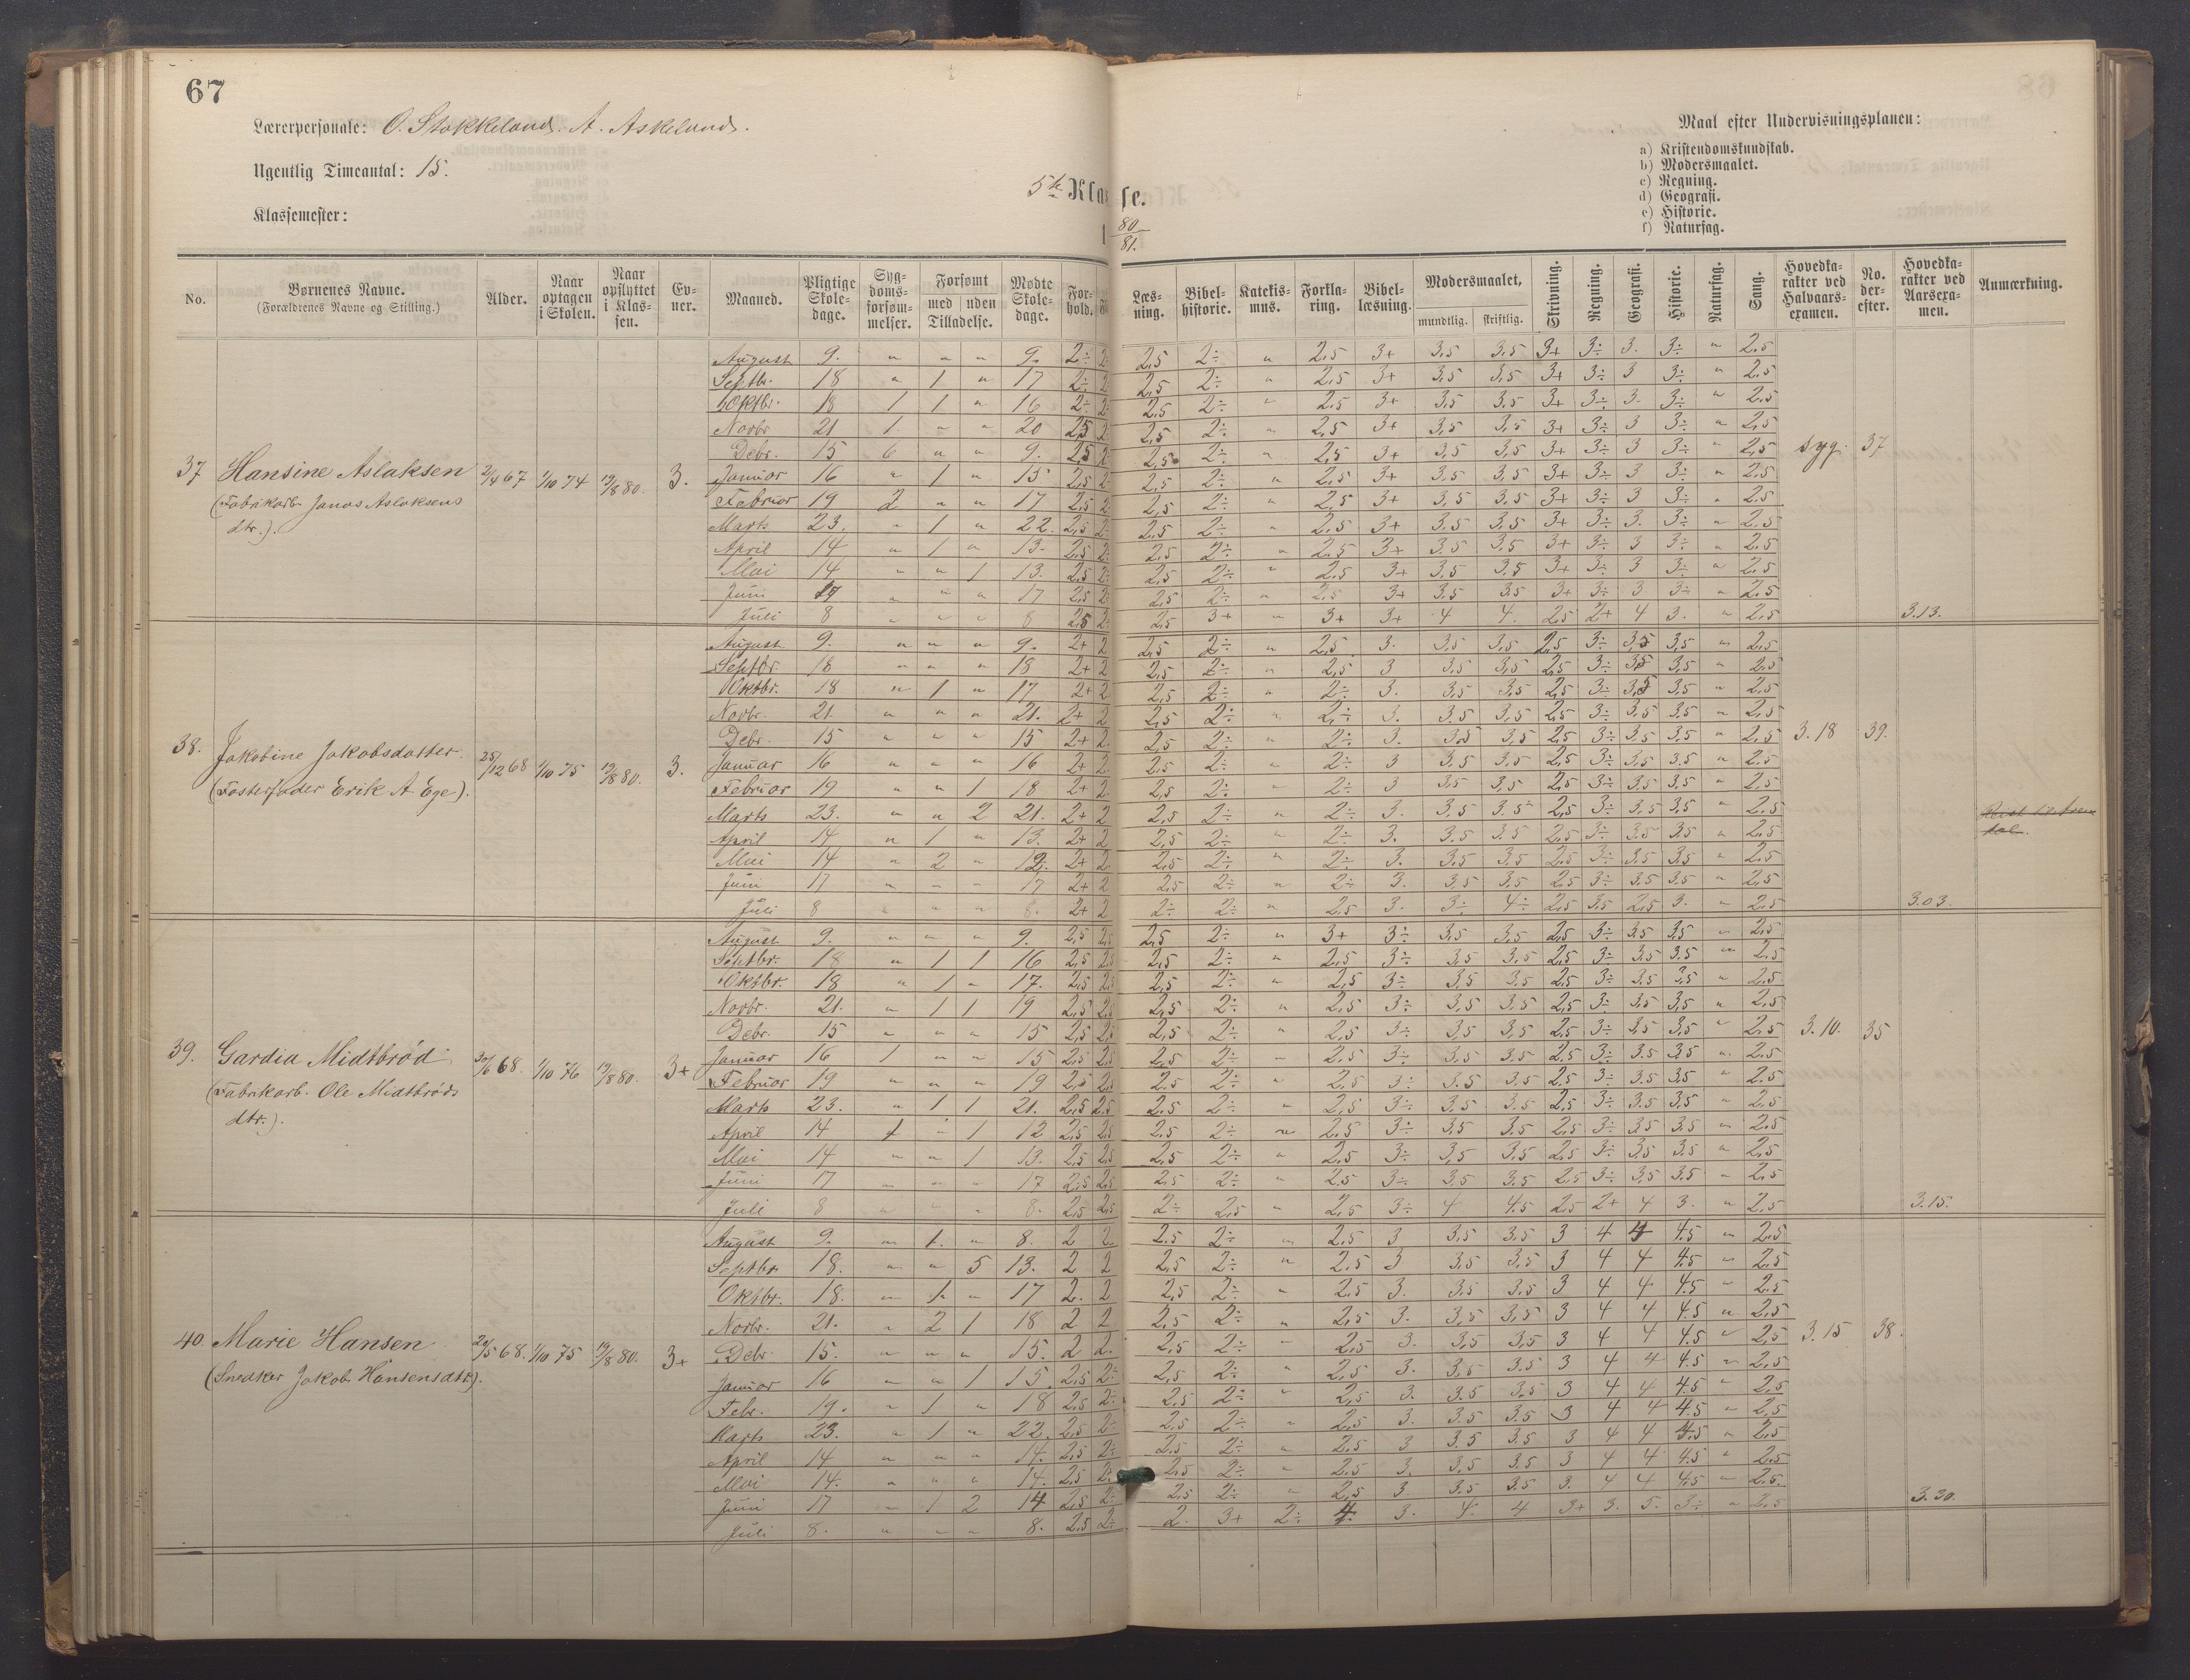 67
Lærerpersonale: O. Stokkeland. A. Askeland.
Ugentlig Timeantal: 15.
Klassemester:
5te Klasse.
1 80/81.
Maal efter Undervisningsplanen:
a) Kristendomskundskab.
b) Modersmaalet.
c) Regning.
d) Geografi.
e) Historie.
f) Naturfag.
No. | Børnenes Navne. (Forældrenes Navne og Stilling.) | Alder. | Naar optagen i Skolen. | Naar opflyttet i Klassen. | Evner. | Maaned. | Pligtige Skoledage. | Sygdomsforsømmelser. | Forsømt med / uden Tilladelse. | Mødte Skoledage. | Forhold. | Læsning. | Bibelhistorie. | Katekismus. | Forklaring. | Bibellæsning. | Modersmaalet, mundtlig. skriftlig. | Skrivning. | Regning. | Geografi. | Historie. | Naturfag. | Sang. | Hovedkarakter ved Halvaarsexamen. | No. derefter. | Hovedkarakter ved Aarsexamen. | Anmærkning.
37 Hansine Aslaksen 2/4 67 1/10 74 19/8 80. 3. syg. 37 3.13.
(Fabrikarb. Janas Aslaksens
dtr.).
August 9. " " " 9. 2÷ 2 2,5 2÷ " 2,5 3+ 3,5 3,5 3+ 3÷ 3. 3÷ " 2,5
Septbr. 18 " 1 " 17 2÷ 2 2,5 2÷ " 2,5 3+ 3,5 3,5 3+ 3÷ 3 3÷ " 2,5
Oktbr. 18 1 1 " 16 2÷ 2 2,5 2÷ " 2,5 3+ 3,5 3,5 3+ 3÷ 3. 3÷ " 2,5
Novbr 21 1. " " 20 2,5 2 2,5 2÷ " 2,5 3+ 3,5 3,5 3+ 3÷ 3 3÷ " 2,5
Debr. 15 6 " " 9. 2,5 2 2,5 2÷ " 2,5 3+ 3,5 3,5 3+ 3÷ 3 3÷ " 2,5
Januar 16 " 1 " 15 2,5 2 2,5 2÷ " 2,5 3+ 3,5 3,5 3+ 3÷ 3 3÷ " 2,5
Februar 19 2 " " 17 2,5 2 2,5 2÷ " 2,5 3+ 3,5 3,5 3+ 3÷ 3 3÷ " 2,5
Marts 23. " 1 " 22. 2,5 2 2,5 2÷ " 2,5 3+ 3,5 3,5 3+ 3÷ 3. 3÷ " 2,5
April 14 " 1 " 13. 2,5 2 2,5 2÷ " 2,5 3+ 3,5 3,5 3+ 3÷ 3 3÷ " 2,5
Mai 14 " " 1 13. 2,5 2 2,5 2÷ " 2,5 3+ 3,5 3,5 3+ 3÷ 3 3÷ " 2,5
Juni 17 " " " 17 2,5 2 2,5 2÷ " 2,5 3+ 3,5 3,5 3+ 3÷ 3 3÷ " 2,5
Juli 8 " " " 8 2,5 2 2,5 3+ " 3+ 3+ 4 4. 2,5 2+ 4 3. " 2,5
38. Jakobine Jakobsdatter. 25/12 68 1/10 75 19/8 80. 3. 3.18 39. 3.03.
(Fosterfader Erik A Ege).
August 9. " " " 9. 2+ 2 2,5 2÷ " 2,5 3. 3,5 3,5 2,5 3÷ 3,5 3,5 " 2,5
Septbr. 18 " " " 18 2+ 2 2,5 2÷ " 2,5 3 3,5 3,5 2,5 3÷ 3,5 3,5 " 2,5
Oktbr. 18 " 1 " 17 2+ 2 2,5 2÷ " 2÷ 3. 3,5 3,5 2,5 3÷ 3,5 3,5 " 2,5
Novbr. 21. " " " 21. 2+ 2 2,5 2÷ " 2÷ 3. 3,5 3,5 2,5 3÷ 3,5 3,5 " 2,5
Debr. 15 " " " 15 2+ 2. 2,5 2÷ " 2÷ 3. 3,5 3,5 2,5 3÷ 3,5 3,5 " 2,5
Januar 16 " " " 16 2+ 2. 2,5 2÷ " 2÷ 3 3,5 3,5 2,5 3÷ 3,5 3,5 " 2,5
Februar 19 " " 1 18 2+ 2. 2,5 2÷ " 2÷ 3 3,5 3,5 2,5 3÷ 3,5 3,5 " 2,5
Marts 23. " " 2 21. 2+ 2 2,5 2÷ " 2÷ 3. 3,5 3,5 2,5 3÷ 3,5 3,5 " 2,5
April 14 " 1 " 13. 2+ 2 2,5 2÷ " 2÷ 3. 3,5 3,5 2,5 3÷ 3,5 3,5 " 2,5
Mai 14 " 2 " 12. 2+ 2 2,5 2÷ " 2÷ 3. 3,5 3,5 2,5 3÷ 3,5 3,5 " 2,5
Juni 17 " " " 17 2+ 2 2,5 2÷ " 2÷ 3. 3,5 3,5 2,5 3÷ 3,5 3,5 " 2,5
Juli 8 " " " 8. 2+ 2 2÷ 2÷ " 2,5 3. 3÷ 4÷ 2,5 3,5 2,5 3. " 2,5
39. Gardia Midtbrød. 30/6 68. 1/10 76 19/8 80. 3+ 3.10. 35 3.15.
(Fabrikarb. Ole Midtbrøds
dtr.).
August 9. " " " 9. 2,5 2,5 2,5 2÷ " 3+ 3÷ 3,5 3,5 2,5 3÷ 3,5 3,5 " 2,5
Septbr. 18 " 1 1 16 2,5 2,5 2,5 2÷ " 2,5 3÷ 3,5 3,5 2,5 3÷ 3,5 3,5 " 2,5
Oktbr. 18 " 1 " 17. 2,5 2,5 2,5 2÷ " 2,5 3÷ 3,5 3,5 2,5 3÷ 3,5 3,5 " 2,5
Novbr. 21. " 1 1 19 2,5 2,5 2,5 2÷ " 2,5 3÷ 3,5 3,5 2,5 3÷ 3,5 3,5 " 2,5
Debr. 15 " " " 15 2,5 2,5 2,5 2÷ " 2,5 3÷ 3,5 3,5 2,5 3÷ 3,5 3,5 " 2,5
Januar 16 1 " " 15 2,5 2,5 2,5 2÷ " 2,5 3÷ 3,5 3,5 2,5 3÷ 3.5 3,5 " 2,5
Februar 19 " " " 19 2,5 2,5 2,5 2÷ " 2,5 3÷ 3.5 3.5 2,5 3÷ 3.5 3,5 " 2,5
Marts 23. " 1 1 21. 2,5 2,5 2.5 2÷ " 2,5 3÷ 3.5 3.5 2,5 3÷ 3.5 3,5 " 2,5
April 14 1 " 1 12 2,5 2,5 2.5 2÷ " 2,5 3÷ 3,5 3.5 2,5 3÷ 3,5 3.5 " 2,5
Mai 14 " " 1 13. 2,5 2,5 2,5 2÷ " 2,5 3÷ 3,5 3,5 2,5 3÷ 3,5 3,5 " 2,5
Juni 17 " " " 17 2,5 2,5 2,5 2÷ " 2.5 3÷ 3,5 3,5 2,5 3÷ 3,5 3.5 " 2,5
Juli 8 " " " 8. 2,5 2,5 2÷ 2,5 " 2,5 3÷ 4 4.5 2,5 2+ 4 3. " 2,5
40. Marie Hansen 20/5 68. 1/10 75 19/8 80. 3+ 3.15 38. 3.30.
(Snedker Jakob Hansensdtr).
August 9. " 1. " 8. 2 2. 2.5 2÷ " 2.5 3 3,5 3,5 3 4 4 4.5 " 2,5
Septbr 18. " " 5 13. 2 2 2,5 2÷ " 2.5 3 3,5 3,5 3 4 4 4.5 " 2,5
Oktbr. 18. " 1. " 17 2. 2 2,5 2÷ " 2.5 3. 3,5 3,5 3 4 4 4.5 " 2.5
Novbr. 21. " 2 1 18 2 2 2,5 2÷ " 2,5 3. 3,5 3,5 3 4 4 4.5 " 2,5
Debr. 15. " " " 15. 2 2. 2,5 2÷ " 2,5 3. 3,5 3,5 3 4 4 4.5 " 2,5
Januar 16 " " 1 15. 2,5 2÷ 2,5 2÷ " 2,5 3. 3,5 3.5 3 4 4 4.5 " 2,5
Febr. 19. " 1 " 18 2,5 2÷ 2.5 2÷ " 2,5 3. 3.5 3,5 3 4 4 4.5 " 2,5
Marts 23. " 1 " 22. 2,5 2÷ 2,5 2÷ " 2,5 3. 3.5 3.5 3 4 4 4.5 " 2,5
April 14 " " " 14. 2,5 2÷ 2,5 2÷ " 2,5 3 3.5 3.5 3 4 4 4,5 " 2,5
Mai 14. " " " 14. 2,5 2÷ 2,5 2÷ " 2.5 3. 3,5 3.5 3 4 4 4.5 " 2,5
Juni 17 " 1 2 14 2,5 2÷ 2,5 2÷ " 2,5 3 3.5 3.5 3. 4 4 4,5 " 2,5
Juli 8. " " " 8. 2,5 2÷ 2. 3+ 2÷ 4. 3. 4. 4 3+ 3. 5. 3÷ " 2,5